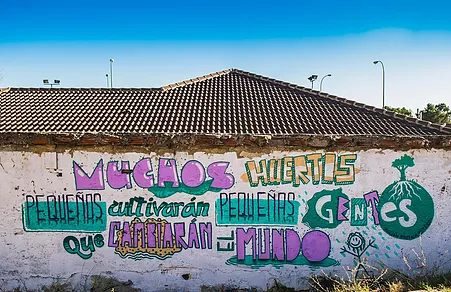 MUCHOS HUERTOS
PEQUEÑAS cultivarán PEQUEÑAS GENTES
QUE CAMBIARÁN EL MUNDO